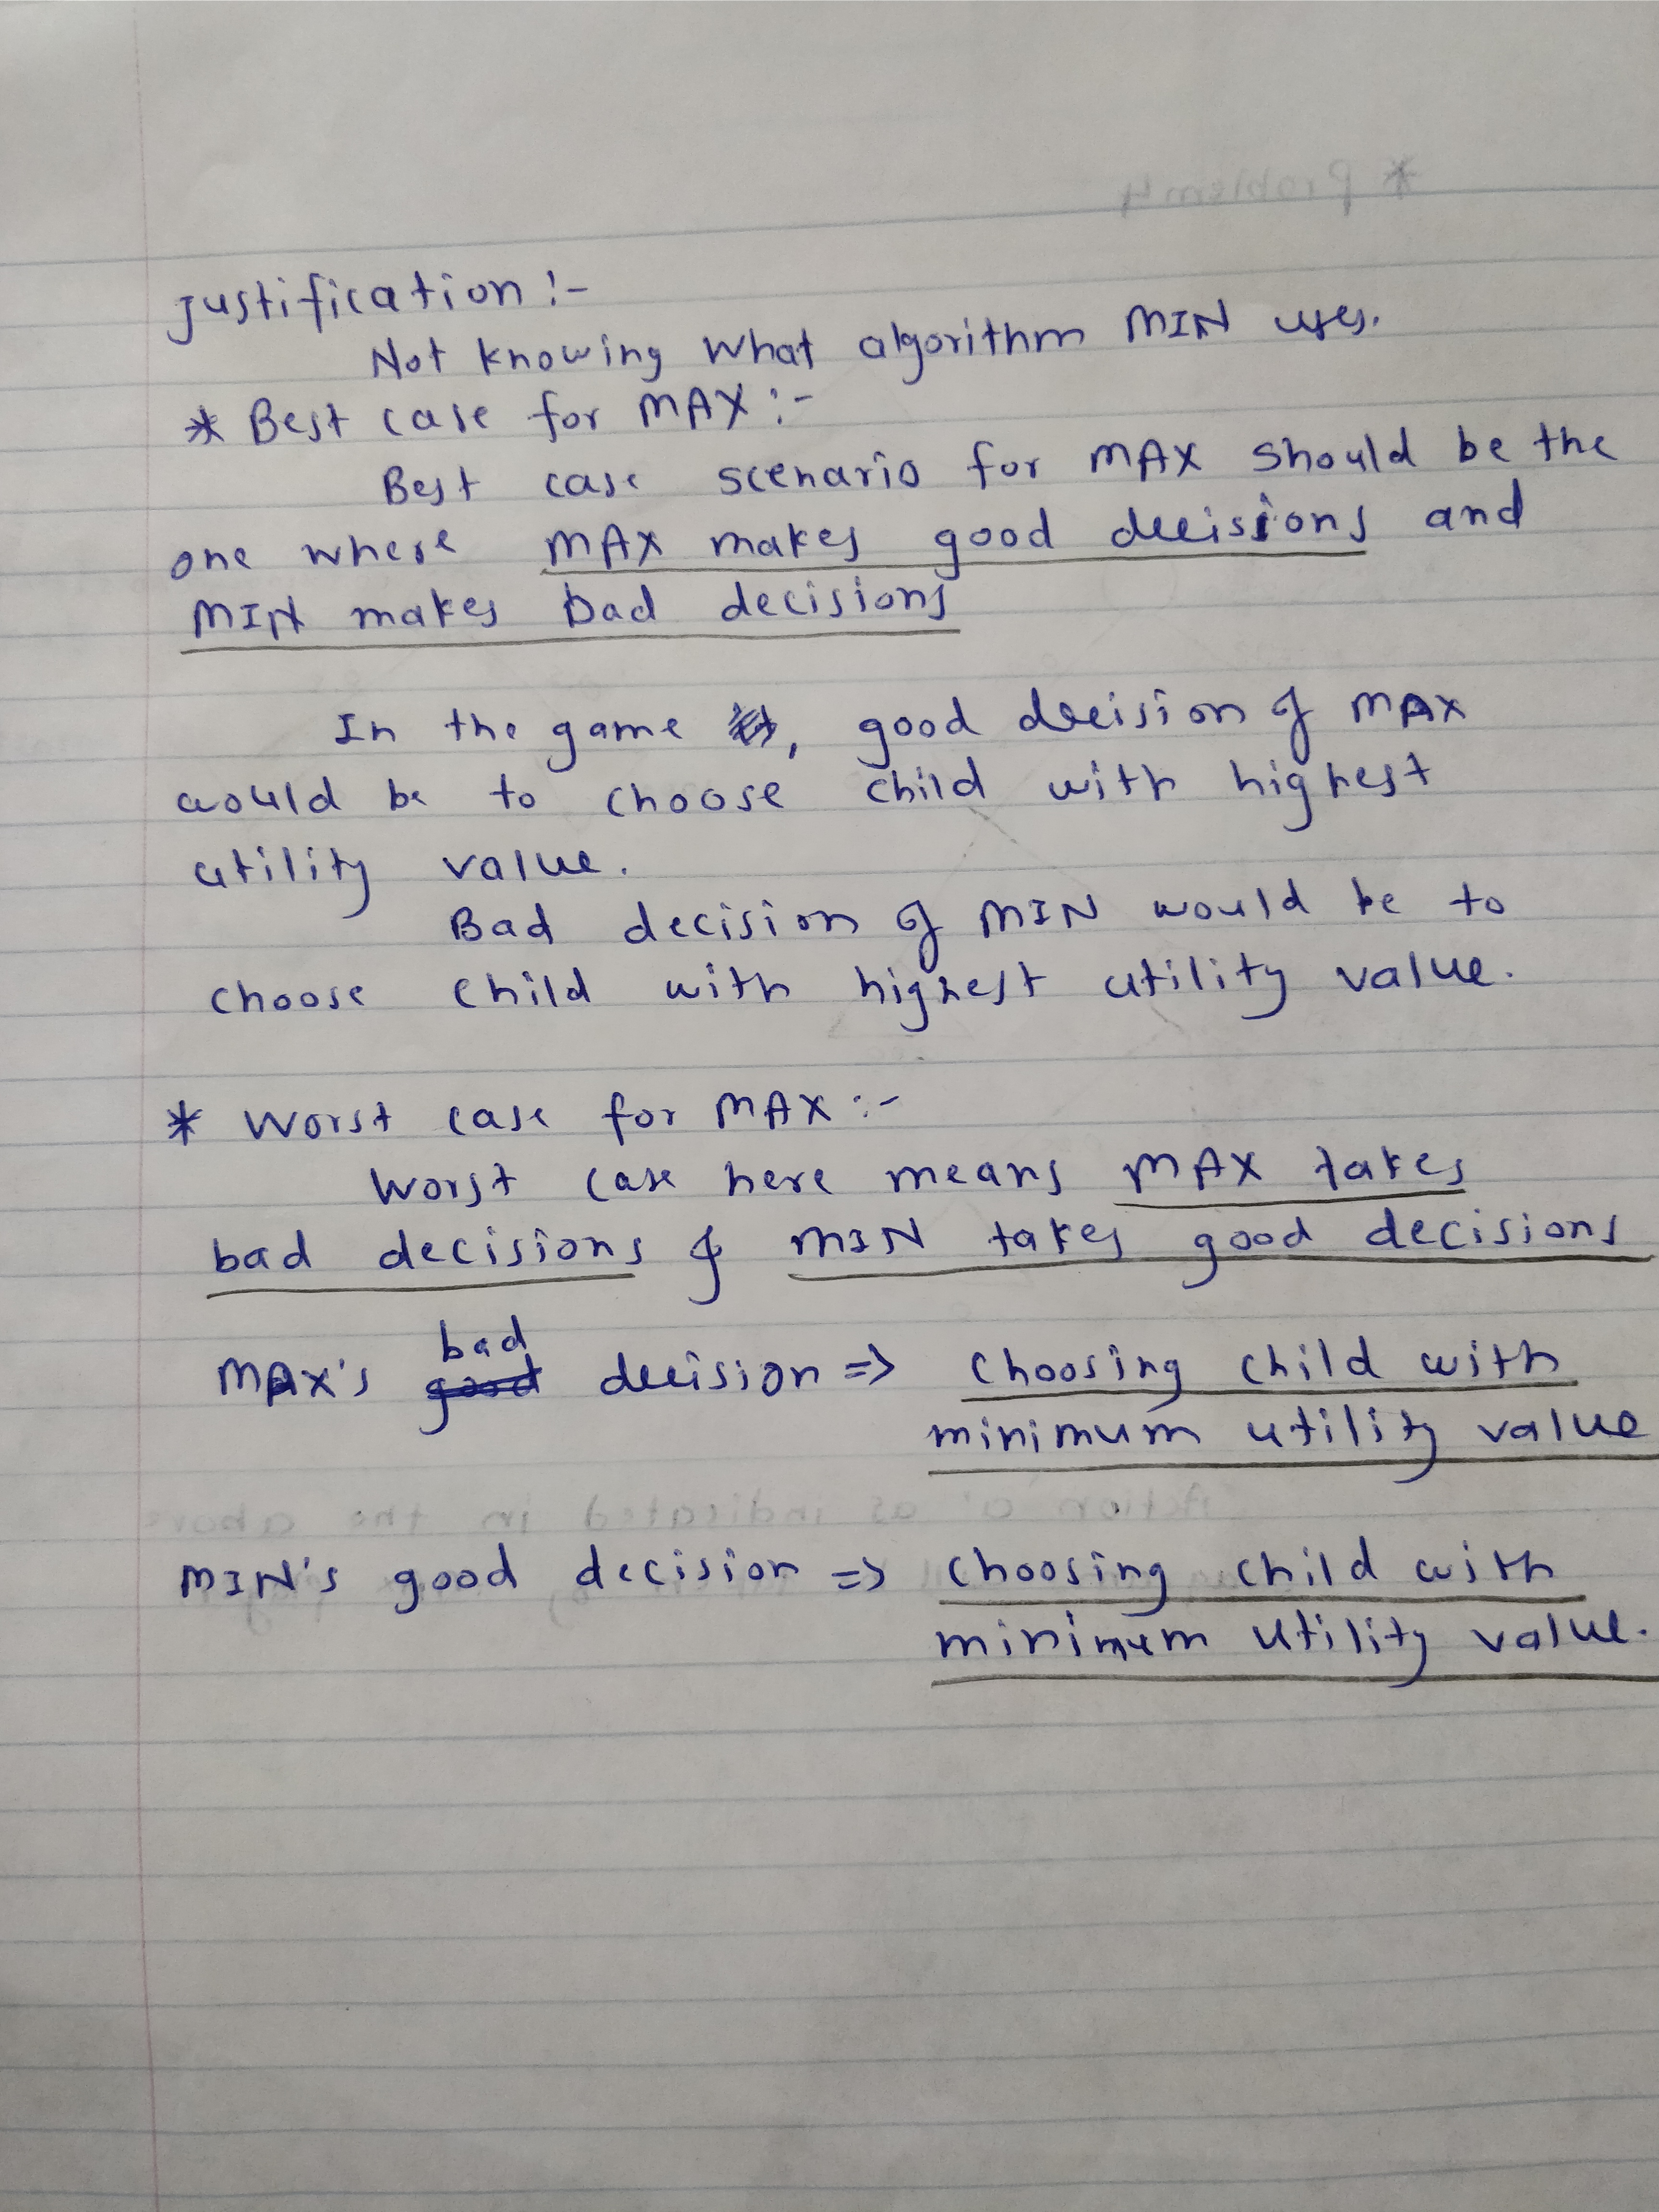 * Problem 4
Justification :-
Not knowing what algorithm MIN uses.
* Best case for MAX :-
Best case scenario for MAX should be the
one where MAX makes good decisions and
MIN makes bad decisions
In the game , good decision of MAX
would be to choose child with highest
utility value.
Bad decision of MIN would be to
choose child with highest utility value.
* Worst case for MAX :-
Worst case here means MAX takes
bad decisions & MIN takes good decisions
MAX's bad good decision => choosing child with
minimum utility value
Action a' as indicated in the above
MIN's good decision => choosing child with
minimum utility value.